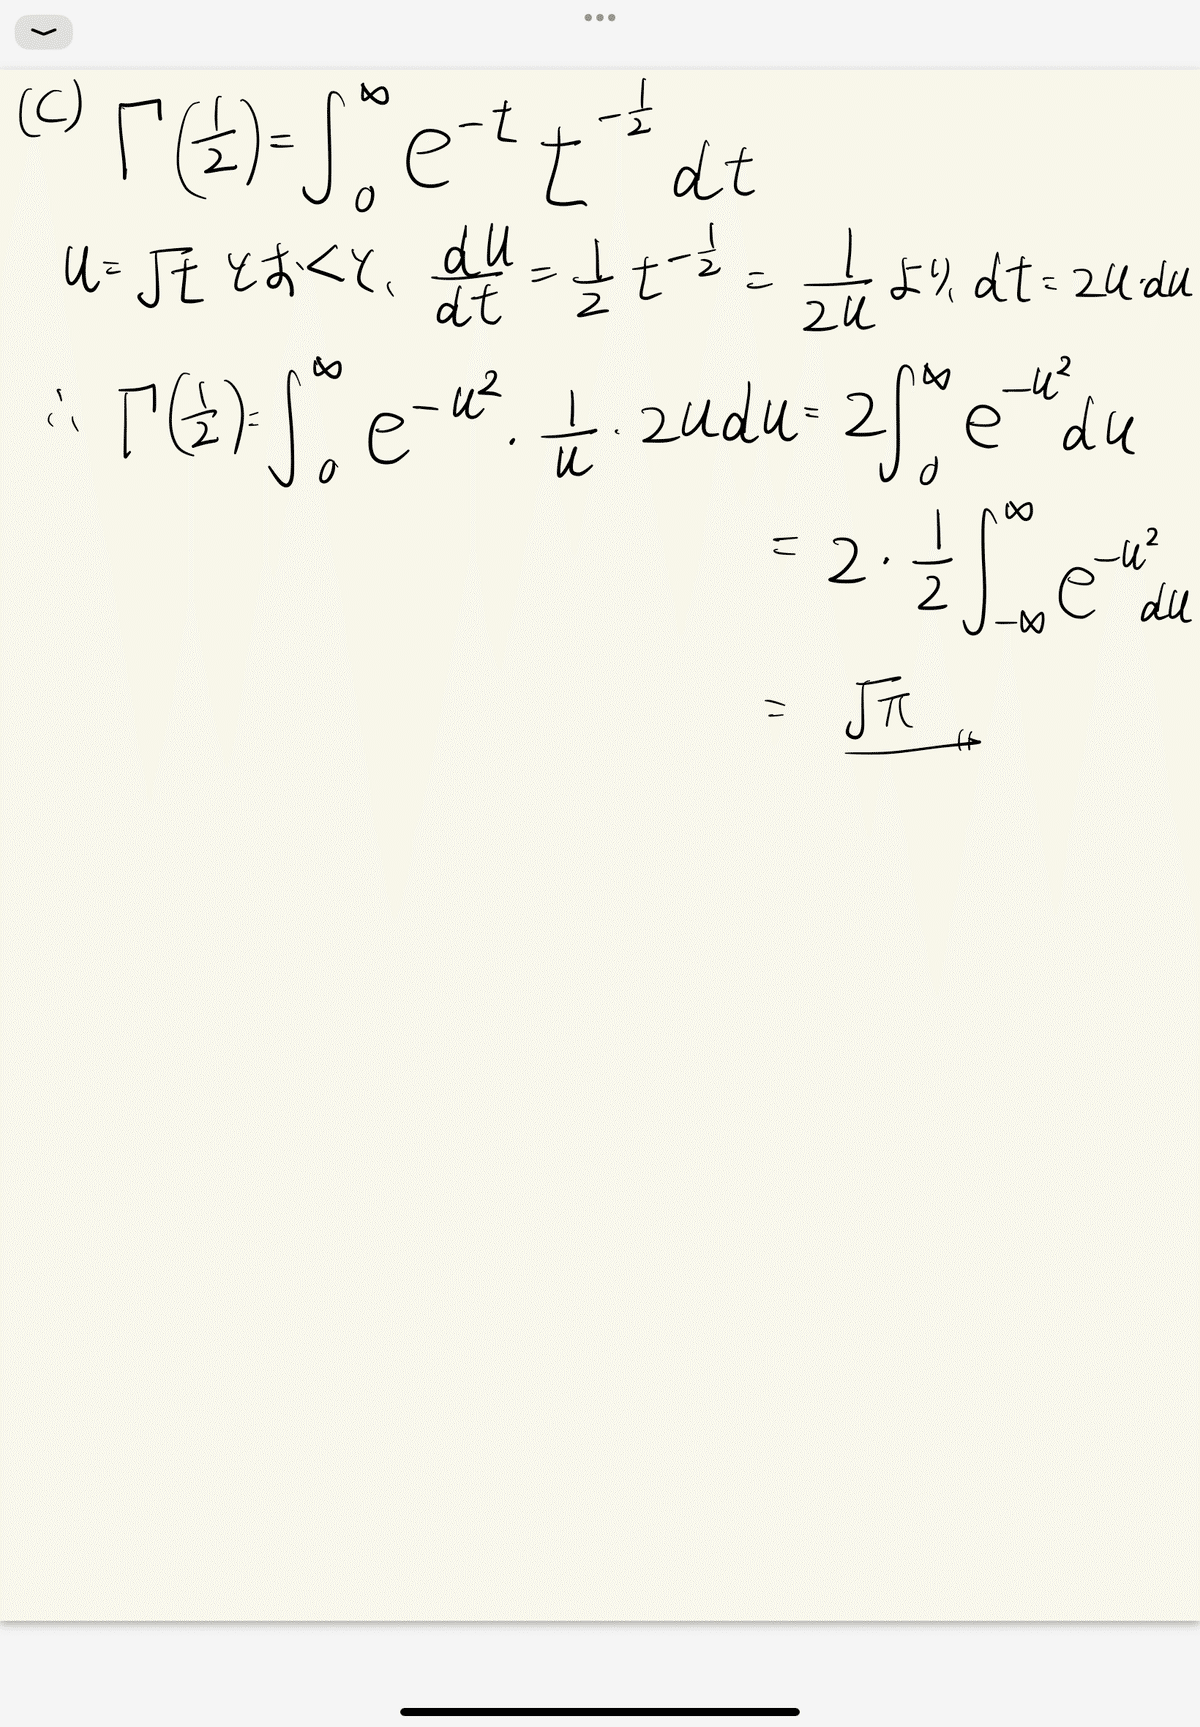 (C) Γ(1/2) = ∫_0^∞ e^{-t} t^{-1/2} dt
u = √t とおくと、 du/dt = 1/2 t^{-1/2} = 1/2u より、 dt = 2u·du
∴ Γ(1/2) = ∫_0^∞ e^{-u^2} · 1/u · 2u du = 2∫_0^∞ e^{-u^2} du
= 2 · 1/2 ∫_{-∞}^∞ e^{-u^2} du
= √π